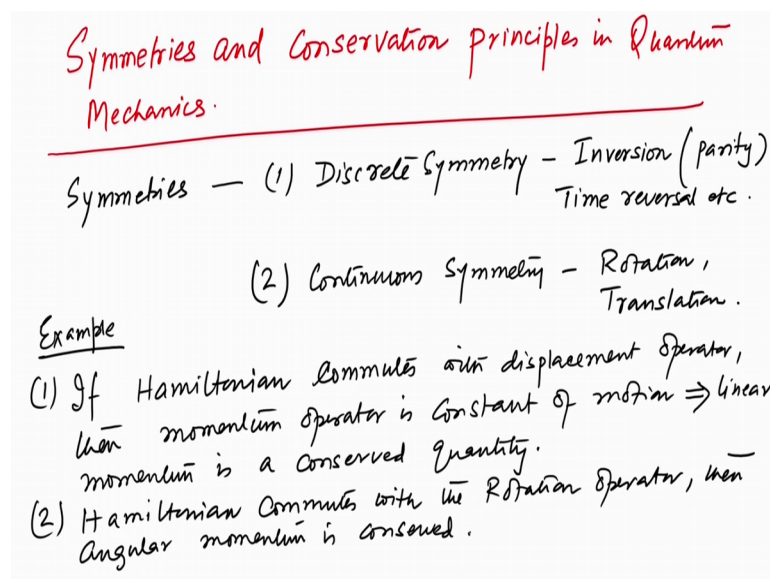 Symmetries and Conservation principles in Quantum
Mechanics.
Symmetries — (1) Discrete Symmetry – Inversion (parity)
Time reversal etc.
(2) Continuous Symmetry – Rotation,
Translation.
Example
(1) If Hamiltonian Commutes with displacement operator,
then momentum operator is Constant of motion ⇒ linear
momentum is a conserved quantity.
(2) Hamiltonian Commutes with the Rotation operator, then
angular momentum is conserved.